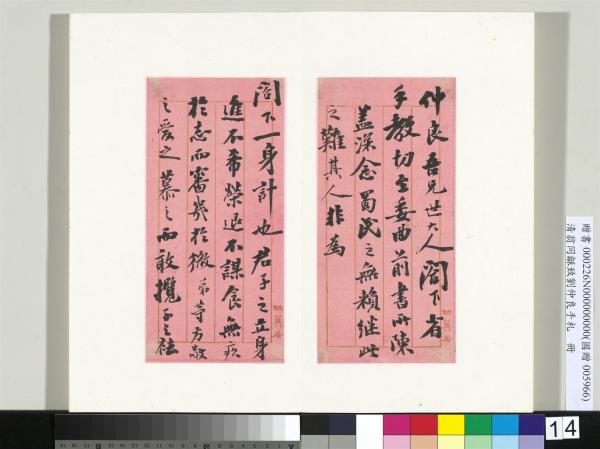 仲良吾兄世大人閣下省
手教切至委曲前書所陳
蓋深念蜀民之無賴繼此
之難其人非為
閣下一身計也君子之立身
進不希榮退不謀食無疚
於志而審幾於微弟等方敬
之愛之慕之而敢攬子之袪
贈書 000226N000000000(國贈 005966)
清翁同龢致劉仲良手札 冊
14